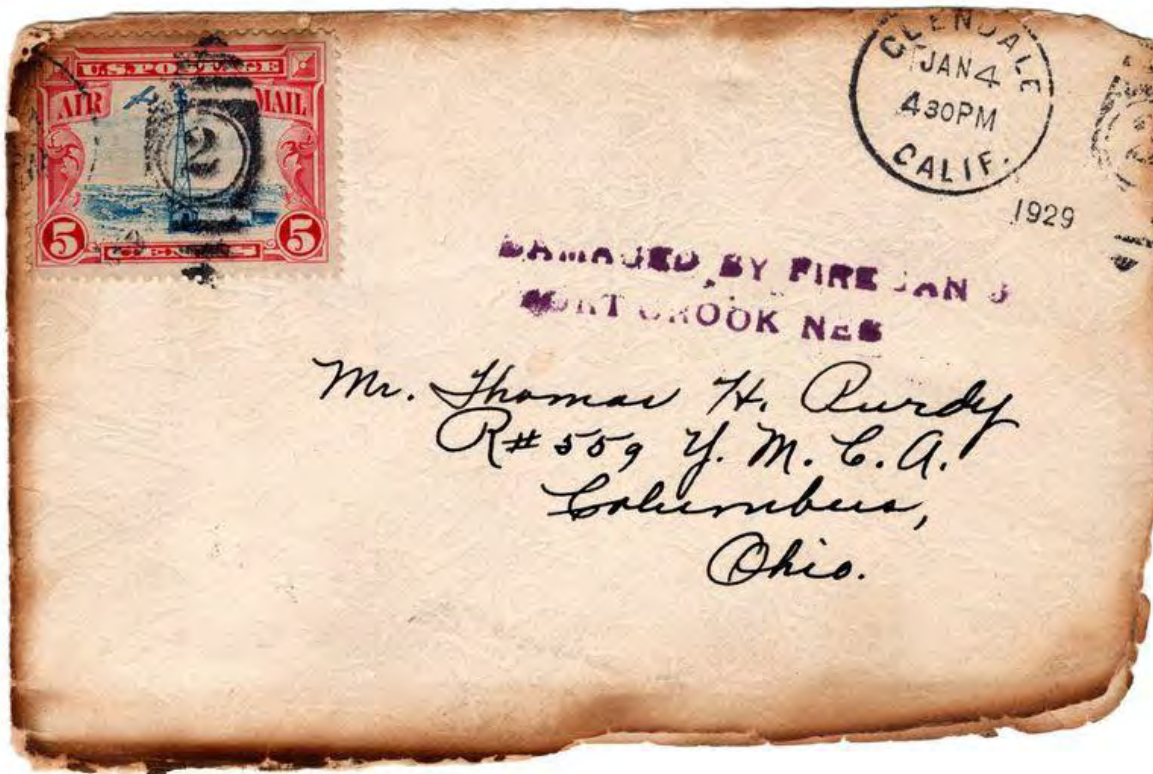 U.S. POSTAGE
AIR MAIL
2
5 CENTS 5
GLENDALE
JAN 4
430PM
CALIF.
1929
DAMAGED BY FIRE JAN
FORT CROOK NEB
Mr. Thomas H. Purdy
R#559 Y. M. C. A.
Columbus,
Ohio.